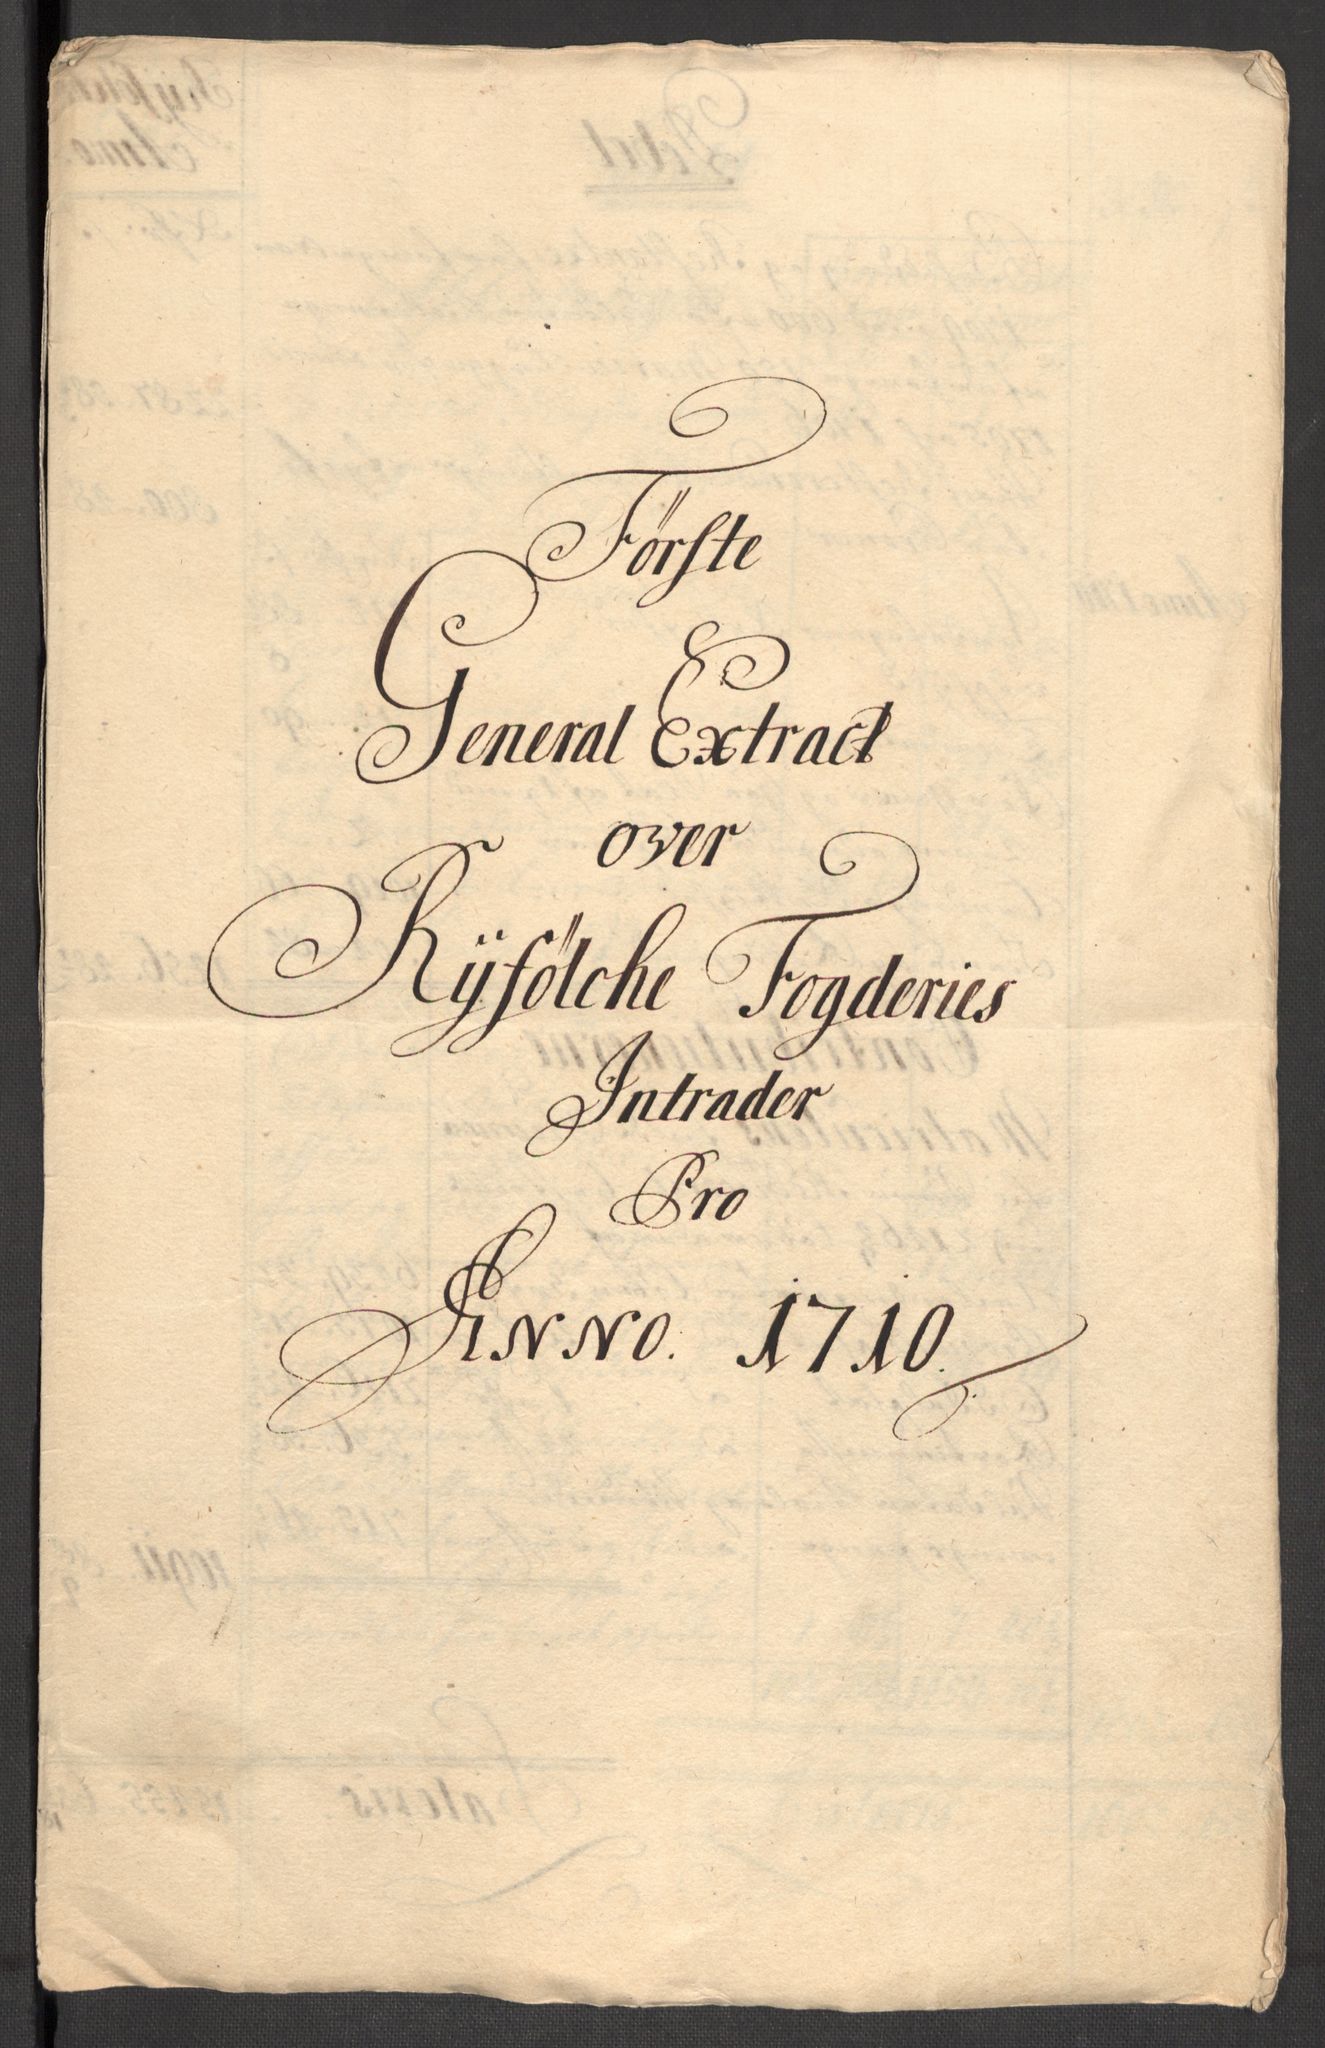 Förste
General Extract
over
Ryfölche Fogderies
Intrader
Pro
Anno. 1710.